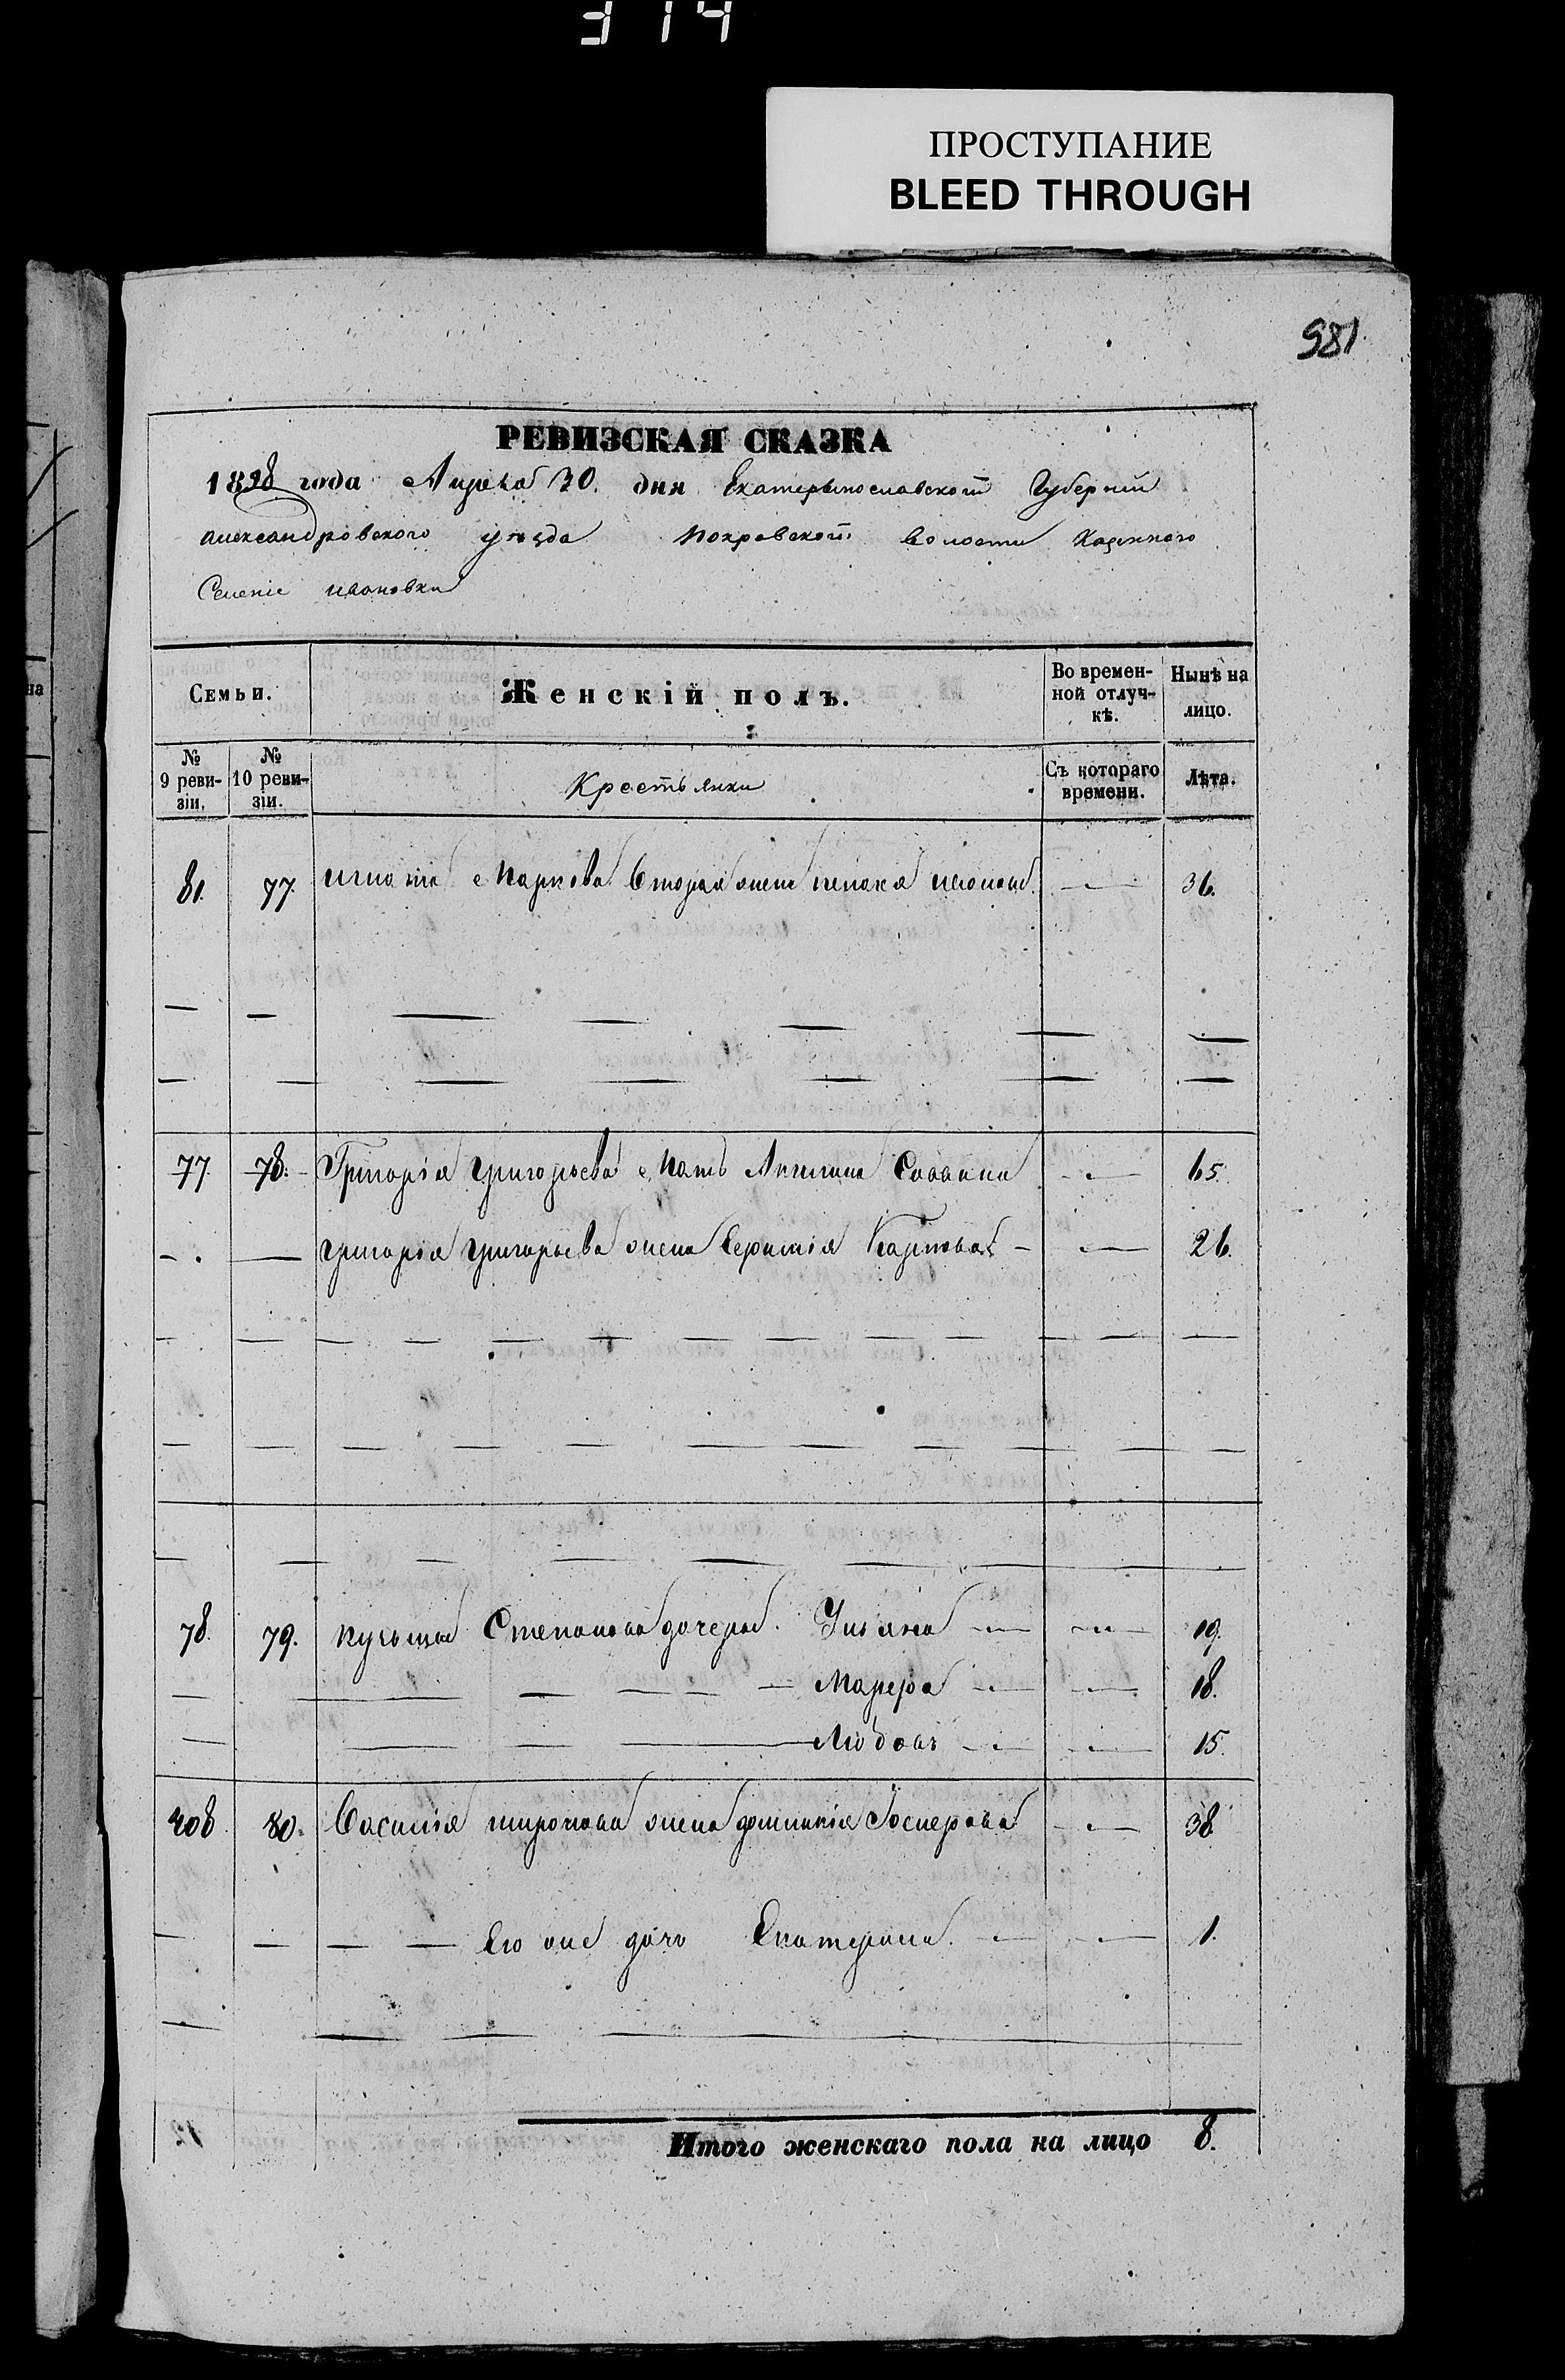 314
ПРОСТУПАНИЕ
BLEED THROUGH
981
РЕВИЗСКАЯ СКАЗКА
1858 года Апреля 30. дня Екатерынославской Губернии
александровского уезда покровской волости Казенного
Селение ивановки
Семьи. Женскій полъ. Во времен-ной отлуч-кѣ. Нынѣ на лицо.
№ 9 реви-зіи. № 10 реви-зіи. Крестьянки Съ котораго времени. Лѣта.
81. 77. игната Маркова Вторая жена 36.
77. 78. Григорія Григорьева Мать 65.
Григорія Григорьева жена Карпова 26.
78. 79. Степанова дочера Ульяна 19.
Марфра 18.
Любовь 15.
208. 80. Василія миронова жена 38
Его же дочь Екатерина. 1.
Итого женскаго пола на лицо 8.